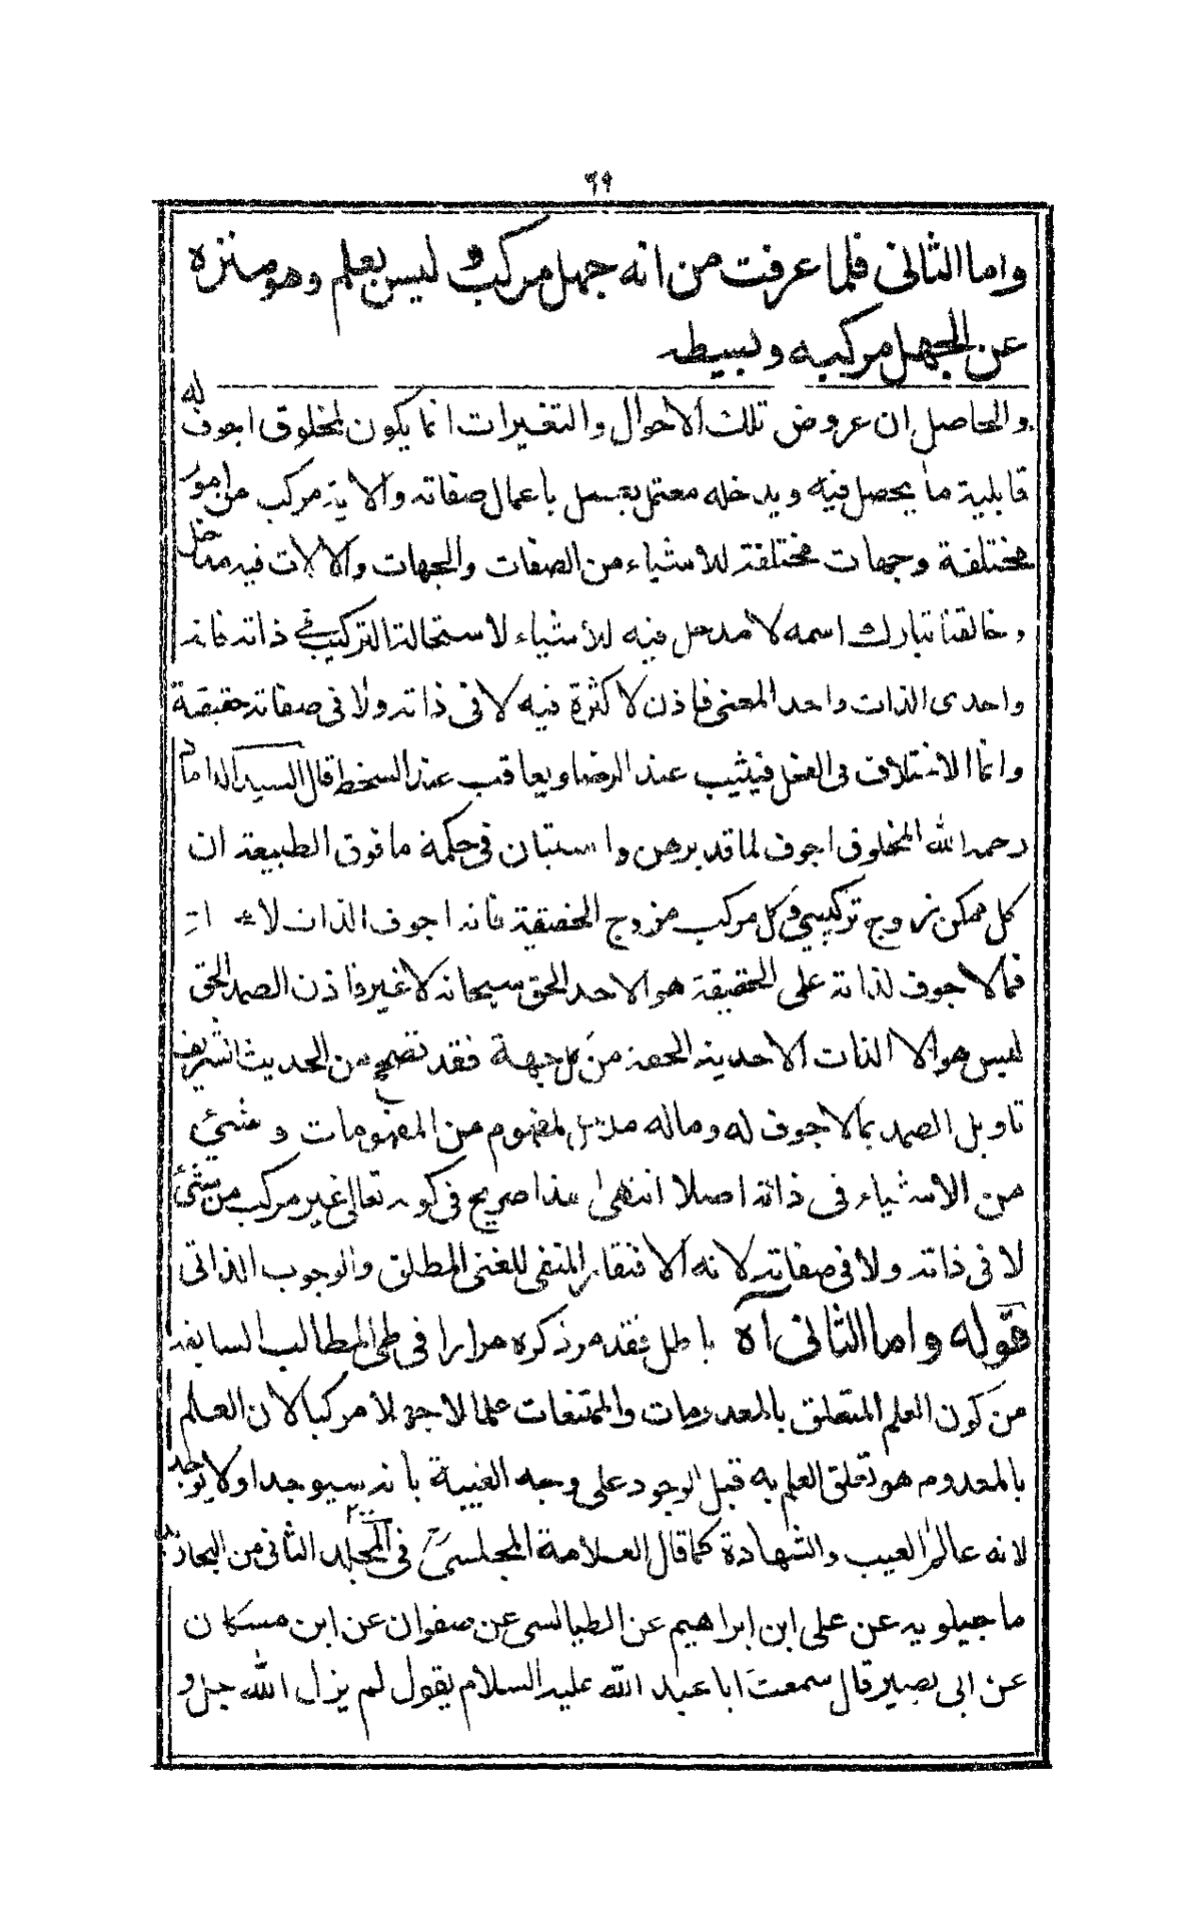 ٦٩
واما الثانى فلما عرفت من انه جهل مركب و ليس بعلم وهو منزه
عن الجهل مركبه وبسيطه
والحاصل ان عروض تلك الاحوال والتغيرات انما يكون لمخلوق اجوف له
قابلية ما يحصل فيه ويدخله معتمل بعمل باعمال صفاته والاية مركب من امور
مختلفة وجهات مختلفة للاشياء من الصفات والجهات والالات فيه مداخل
وخالقنا تبارك اسمه لا مدخل فيه للاشياء لاستحالة التركيب فى ذاته فانه
واحدى الذات واحد المعنى فاذن لا كثرة فيه لا فى ذاته ولا فى صفاته حقيقة
وانما الاختلاف فى الفعل فيثيب عند الرضا ويعاقب عند السخط قال السيد الداماد
رحمه الله المخلوق اجوف لما قد برهن واستبان فى حكمة ما فوق الطبيعة ان
كل ممكن زوج تركيبى وكل مركب مزوج الحقيقة فانه اجوف الذات لا
فما لا جوف لذاته على الحقيقة هو الاحد الحق سبحانه لا غير فاذن الصمد الحق
ليس هو الا الذات الاحدية الحقة من كل جهة فقد تصحح من الحديث الشريف
تاويل الصمد بما لا جوف له وما له مدخل لمفهوم من المفهومات و شيئ
من الاشياء فى ذاته اصلا انتهى هذا صريح فى كونه تعالى غير مركب من شئ
لا فى ذاته ولا فى صفاته لانه الافتقار المنفى للغنى المطلق والوجوب الذاتى
قوله واما الثانى آه باطل فقد مر ذكره مرارا فى طى المطالب السابقه
من كون العلم المتعلق بالمعدومات والممتنعات علما لا جهلا مركبا لان العلم
بالمعدوم هو تعلق العلم به قبل الوجود على وجه الغيبة بانه سيوجد او لا يوجد
لانه عالم الغيب والشهادة كما قال العلامة المجلسى فى المجلد الثانى من البحار
ماجيلويه عن على ابن ابراهيم عن الطيالسى عن صفوان عن ابن مسكان
عن ابى بصير قال سمعت ابا عبد الله عليه السلام يقول لم يزل الله جل و